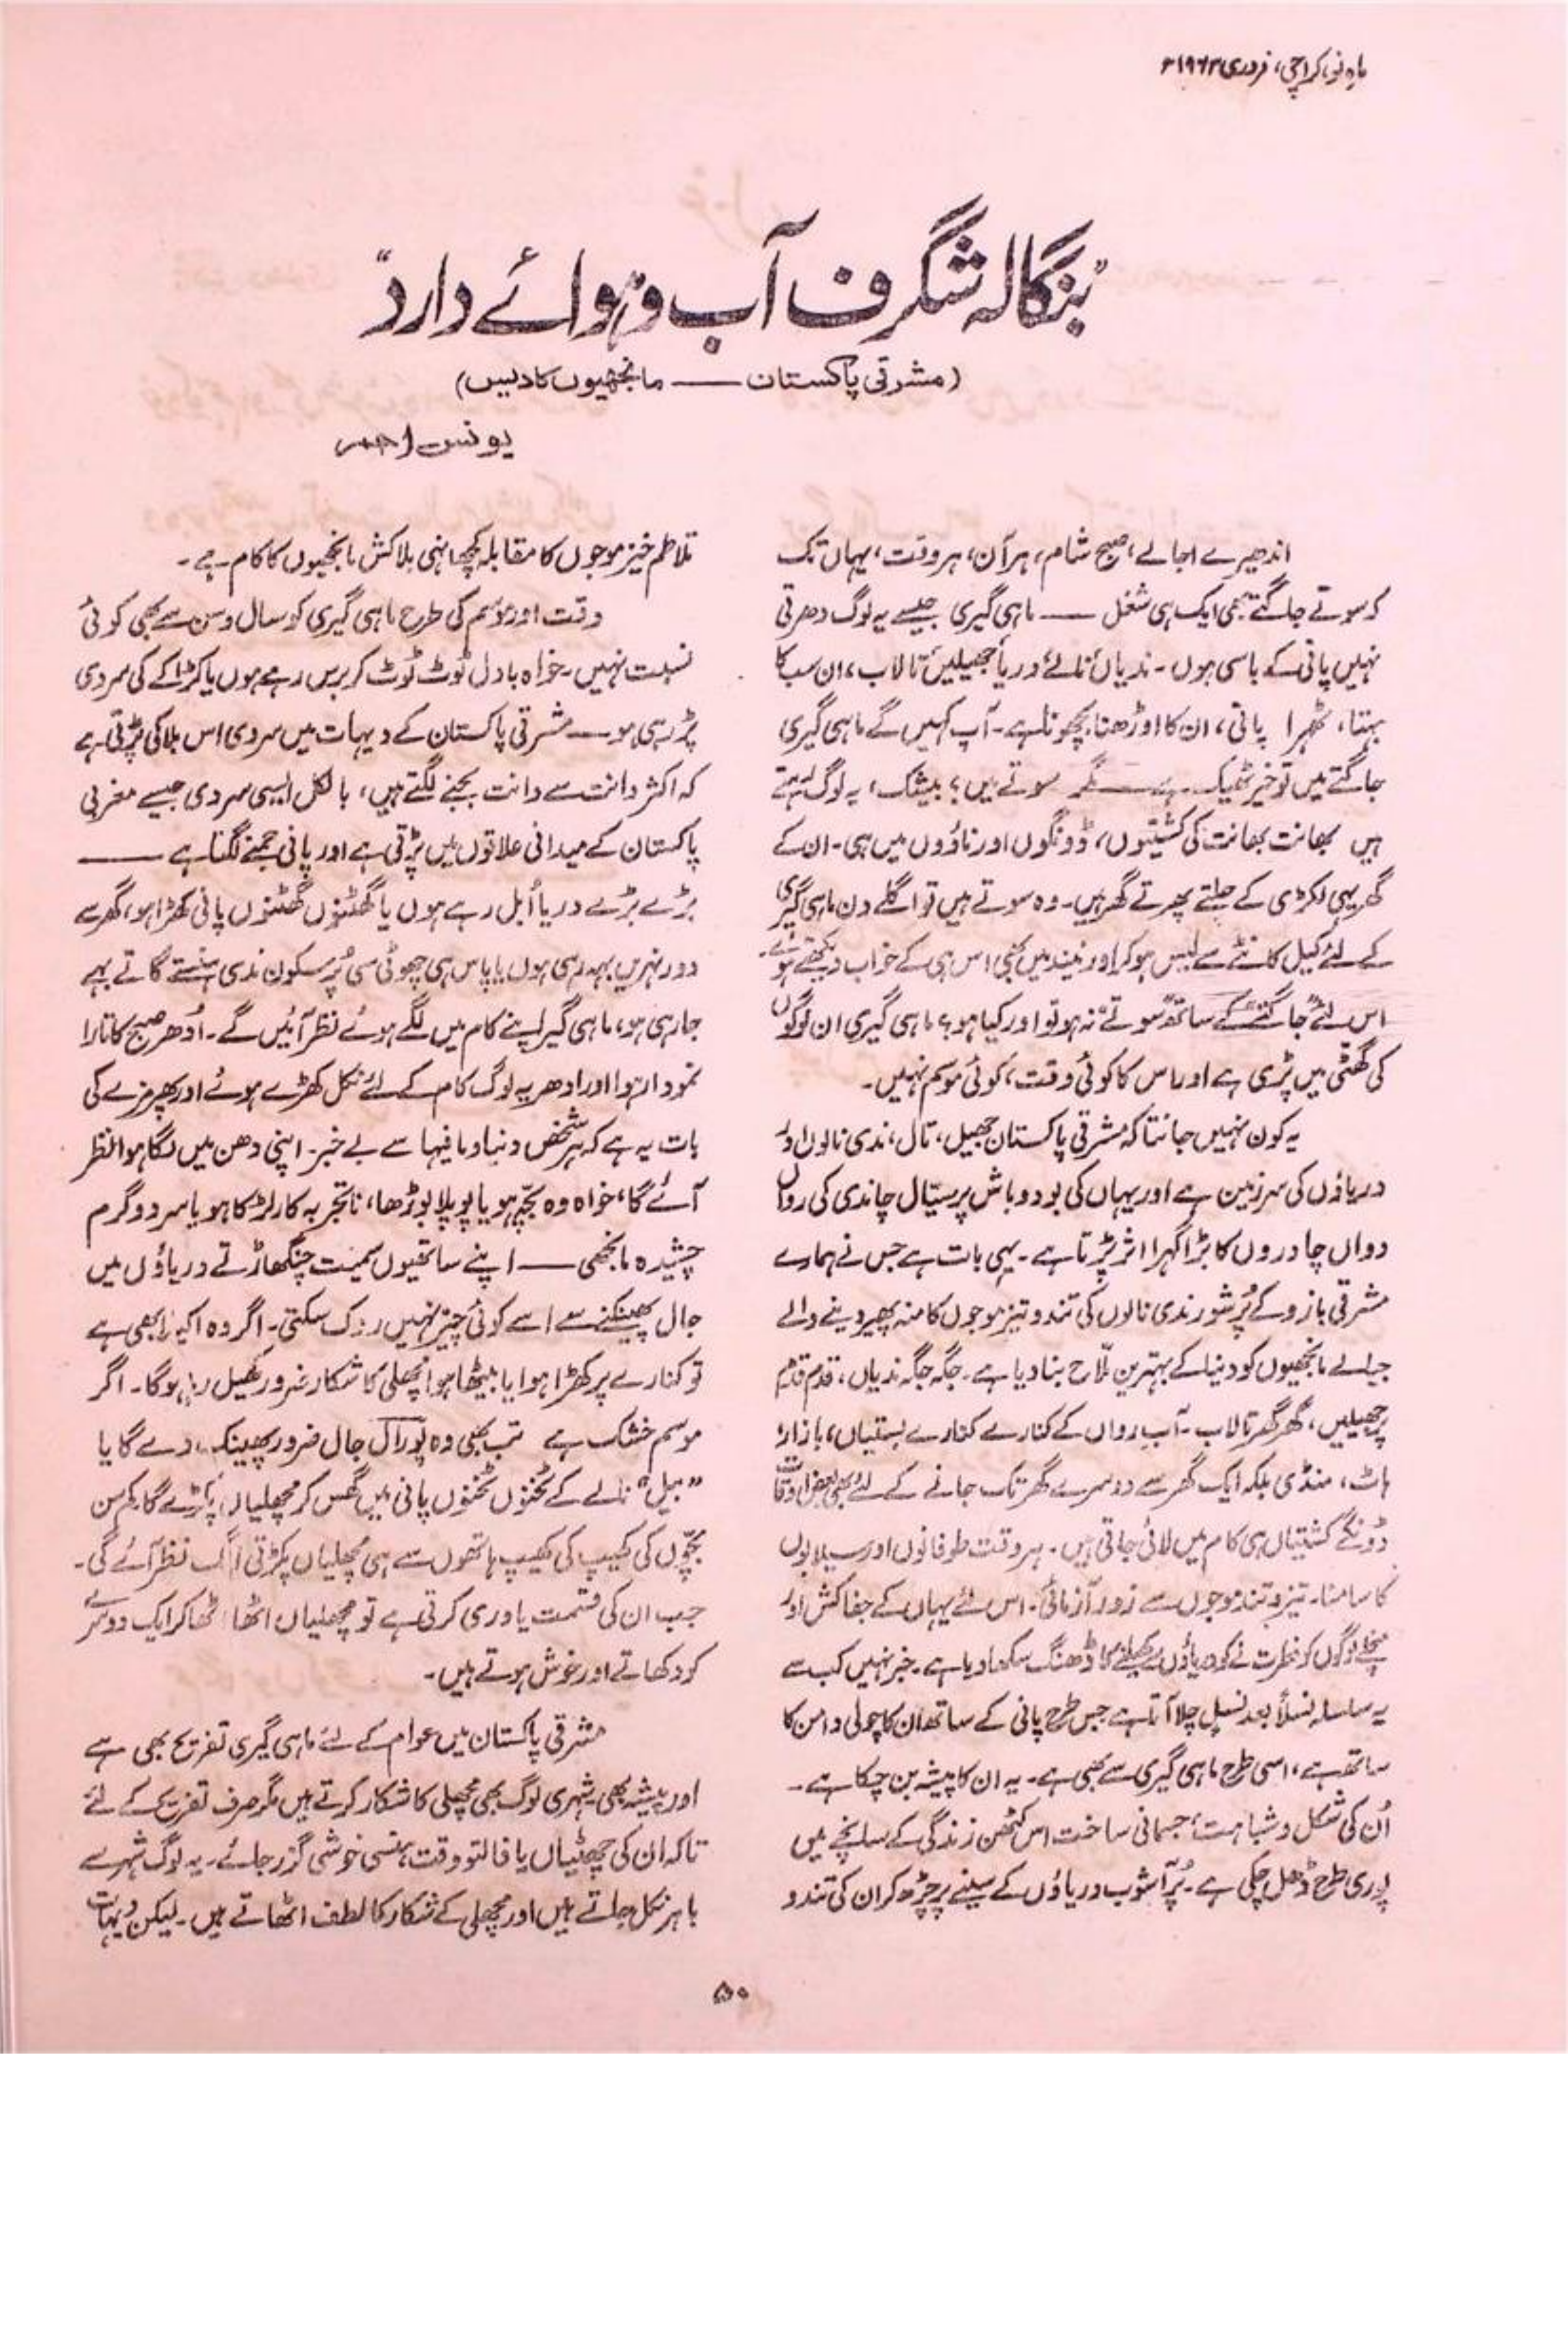 ماہ نو، کراچی، فروری ۱۹۶۲ء
"بنگالہ شگرف آب و ہوائے دارد"
(مشرقی پاکستان —— مانجھیوں کا دیس)
یونس احمر
اندھیرے اجالے، صبح شام، ہر آن، ہر وقت، یہاں تک
کہ سوتے جاگتے بھی ایک ہی شغل —— ماہی گیری جیسے یہ لوگ دھرتی
نہیں پانی کے باسی ہوں۔ ندیاں نالے دریا جھیلیں تالاب، ان سب کا
بہتا، ٹھہرا پانی، ان کا اوڑھنا بچھونا ہے۔ آپ کہیں گے ماہی گیری
جاگتے میں تو خیر ٹھیک ہے —— مگر سوتے میں؟ بیشک، یہ لوگ رہتے
ہیں بھانت بھانت کی کشتیوں، ڈونگوں اور ناؤوں میں ہی۔ ان کے
گھر یہی لکڑی کے چلتے پھرتے گھر ہیں۔ وہ سوتے ہیں تو اگلے دن ماہی گیری
کے لئے کیل کانٹے سے لیس ہو کر اور نیند میں بھی اس ہی کے خواب دیکھتے ہوئے۔
اس لئے "جاگتے" کے ساتھ "سوتے" نہ ہو تو اور کیا ہو؟ ماہی گیری ان لوگوں
کی گھٹی میں پڑی ہے اور اس کا کوئی وقت، کوئی موسم نہیں۔
یہ کون نہیں جانتا کہ مشرقی پاکستان جھیل، تال، ندی نالوں اور
دریاؤں کی سرزمین ہے اور یہاں کی بود و باش پر سیّال چاندی کی رواں
دواں چادروں کا بڑا گہرا اثر پڑتا ہے۔ یہی بات ہے جس نے ہمارے
مشرقی بازو کے پُرشور ندی نالوں کی تند و تیز موجوں کا منہ پھیر دینے والے
جیالے مانجھیوں کو دنیا کے بہترین ملّاح بنا دیا ہے۔ جگہ جگہ ندیاں، قدم قدم
پر جھیلیں، گھر گھر تالاب۔ آبِ رواں کے کنارے کنارے بستیاں، بازار،
ہاٹ، منڈی بلکہ ایک گھر سے دوسرے گھر تک جانے کے لئے بھی بعض اوقات
ڈونگے کشتیاں ہی کام میں لائی جاتی ہیں۔ ہر وقت طوفانوں اور سیلابوں
کا سامنا۔ تیز و تند موجوں سے زور آزمائی۔ اس لئے یہاں کے جفاکش اور
منچلے لوگوں کو فطرت نے خود دریاؤں سے کھیلنے کا ڈھنگ سکھا دیا ہے۔ خبر نہیں کب سے
یہ سلسلہ نسلاً بعد نسلٍ چلا آتا ہے جس طرح پانی کے ساتھ ان کا چولی دامن کا
ساتھ ہے، اسی طرح ماہی گیری سے بھی ہے۔ یہ ان کا پیشہ بن چکا ہے۔
اُن کی شکل و شباہت، جسمانی ساخت اس کٹھن زندگی کے سانچے میں
پوری طرح ڈھل چکی ہے۔ پُرآشوب دریاؤں کے سینے پر چڑھ کر ان کی تند و
تلاطم خیز موجوں کا مقابلہ کچھ انہی بلاکش مانجھیوں کا کام ہے۔
وقت اور موسم کی طرح ماہی گیری کو سال و سن سے بھی کوئی
نسبت نہیں۔ خواہ بادل ٹوٹ ٹوٹ کر برس رہے ہوں یا کڑاکے کی سردی
پڑ رہی ہو —— مشرقی پاکستان کے دیہات میں سردی اس بلا کی پڑتی ہے
کہ اکثر دانت سے دانت بجنے لگتے ہیں، بالکل ایسی سردی جیسے مغربی
پاکستان کے میدانی علاقوں میں پڑتی ہے اور پانی جمنے لگتا ہے ——
بڑے بڑے دریا اُبل رہے ہوں یا گھٹنوں گھٹنوں پانی کھڑا ہو، گھر سے
دور نہریں بہہ رہی ہوں یا پاس ہی چھوٹی سی پُرسکون ندی ہنستے گاتے بہے
جا رہی ہو، ماہی گیر اپنے کام میں لگے ہوئے نظر آئیں گے۔ اُدھر صبح کا تارا
نمودار ہوا اور ادھر یہ لوگ کام کے لئے نکل کھڑے ہوئے اور پھر مزے کی
بات یہ ہے کہ ہر شخص دنیا و مافیہا سے بے خبر۔ اپنی دھن میں لگا ہوا نظر
آئے گا، خواہ وہ بچّہ ہو یا پوپلا بوڑھا، ناتجربہ کار لڑکا ہو یا سرد و گرم
چشیدہ مانجھی —— اپنے ساتھیوں سمیت چنگھاڑتے دریاؤں میں
جال پھینکنے سے اسے کوئی چیز نہیں روک سکتی۔ اگر وہ اکیلا بھی ہے
تو کنارے پر کھڑا ہوا یا بیٹھا ہوا مچھلی کا شکار ضرور کھیل رہا ہوگا۔ اگر
موسم خشک ہے تب بھی وہ پورا جال ضرور پھینک دے گا یا
"بیل" نالے کے ٹخنوں ٹخنوں پانی میں گھس کر مچھلیاں پکڑے گا۔ کم سن
بچّوں کی کھیپ کی کھیپ ہاتھوں سے ہی مچھلیاں پکڑتی الگ نظر آئے گی۔
جب ان کی قسمت یاوری کرتی ہے تو مچھلیاں اٹھا اٹھا کر ایک دوسرے
کو دکھاتے اور خوش ہوتے ہیں۔
مشرقی پاکستان میں عوام کے لئے ماہی گیری تفریح بھی ہے
اور پیشہ بھی۔ شہری لوگ بھی مچھلی کا شکار کرتے ہیں مگر صرف تفریح کے لئے
تاکہ ان کی چھٹیاں یا فالتو وقت ہنسی خوشی گزر جائے۔ یہ لوگ شہر سے
باہر نکل جاتے ہیں اور مچھلی کے شکار کا لطف اٹھاتے ہیں۔ لیکن دیہات
۵۰